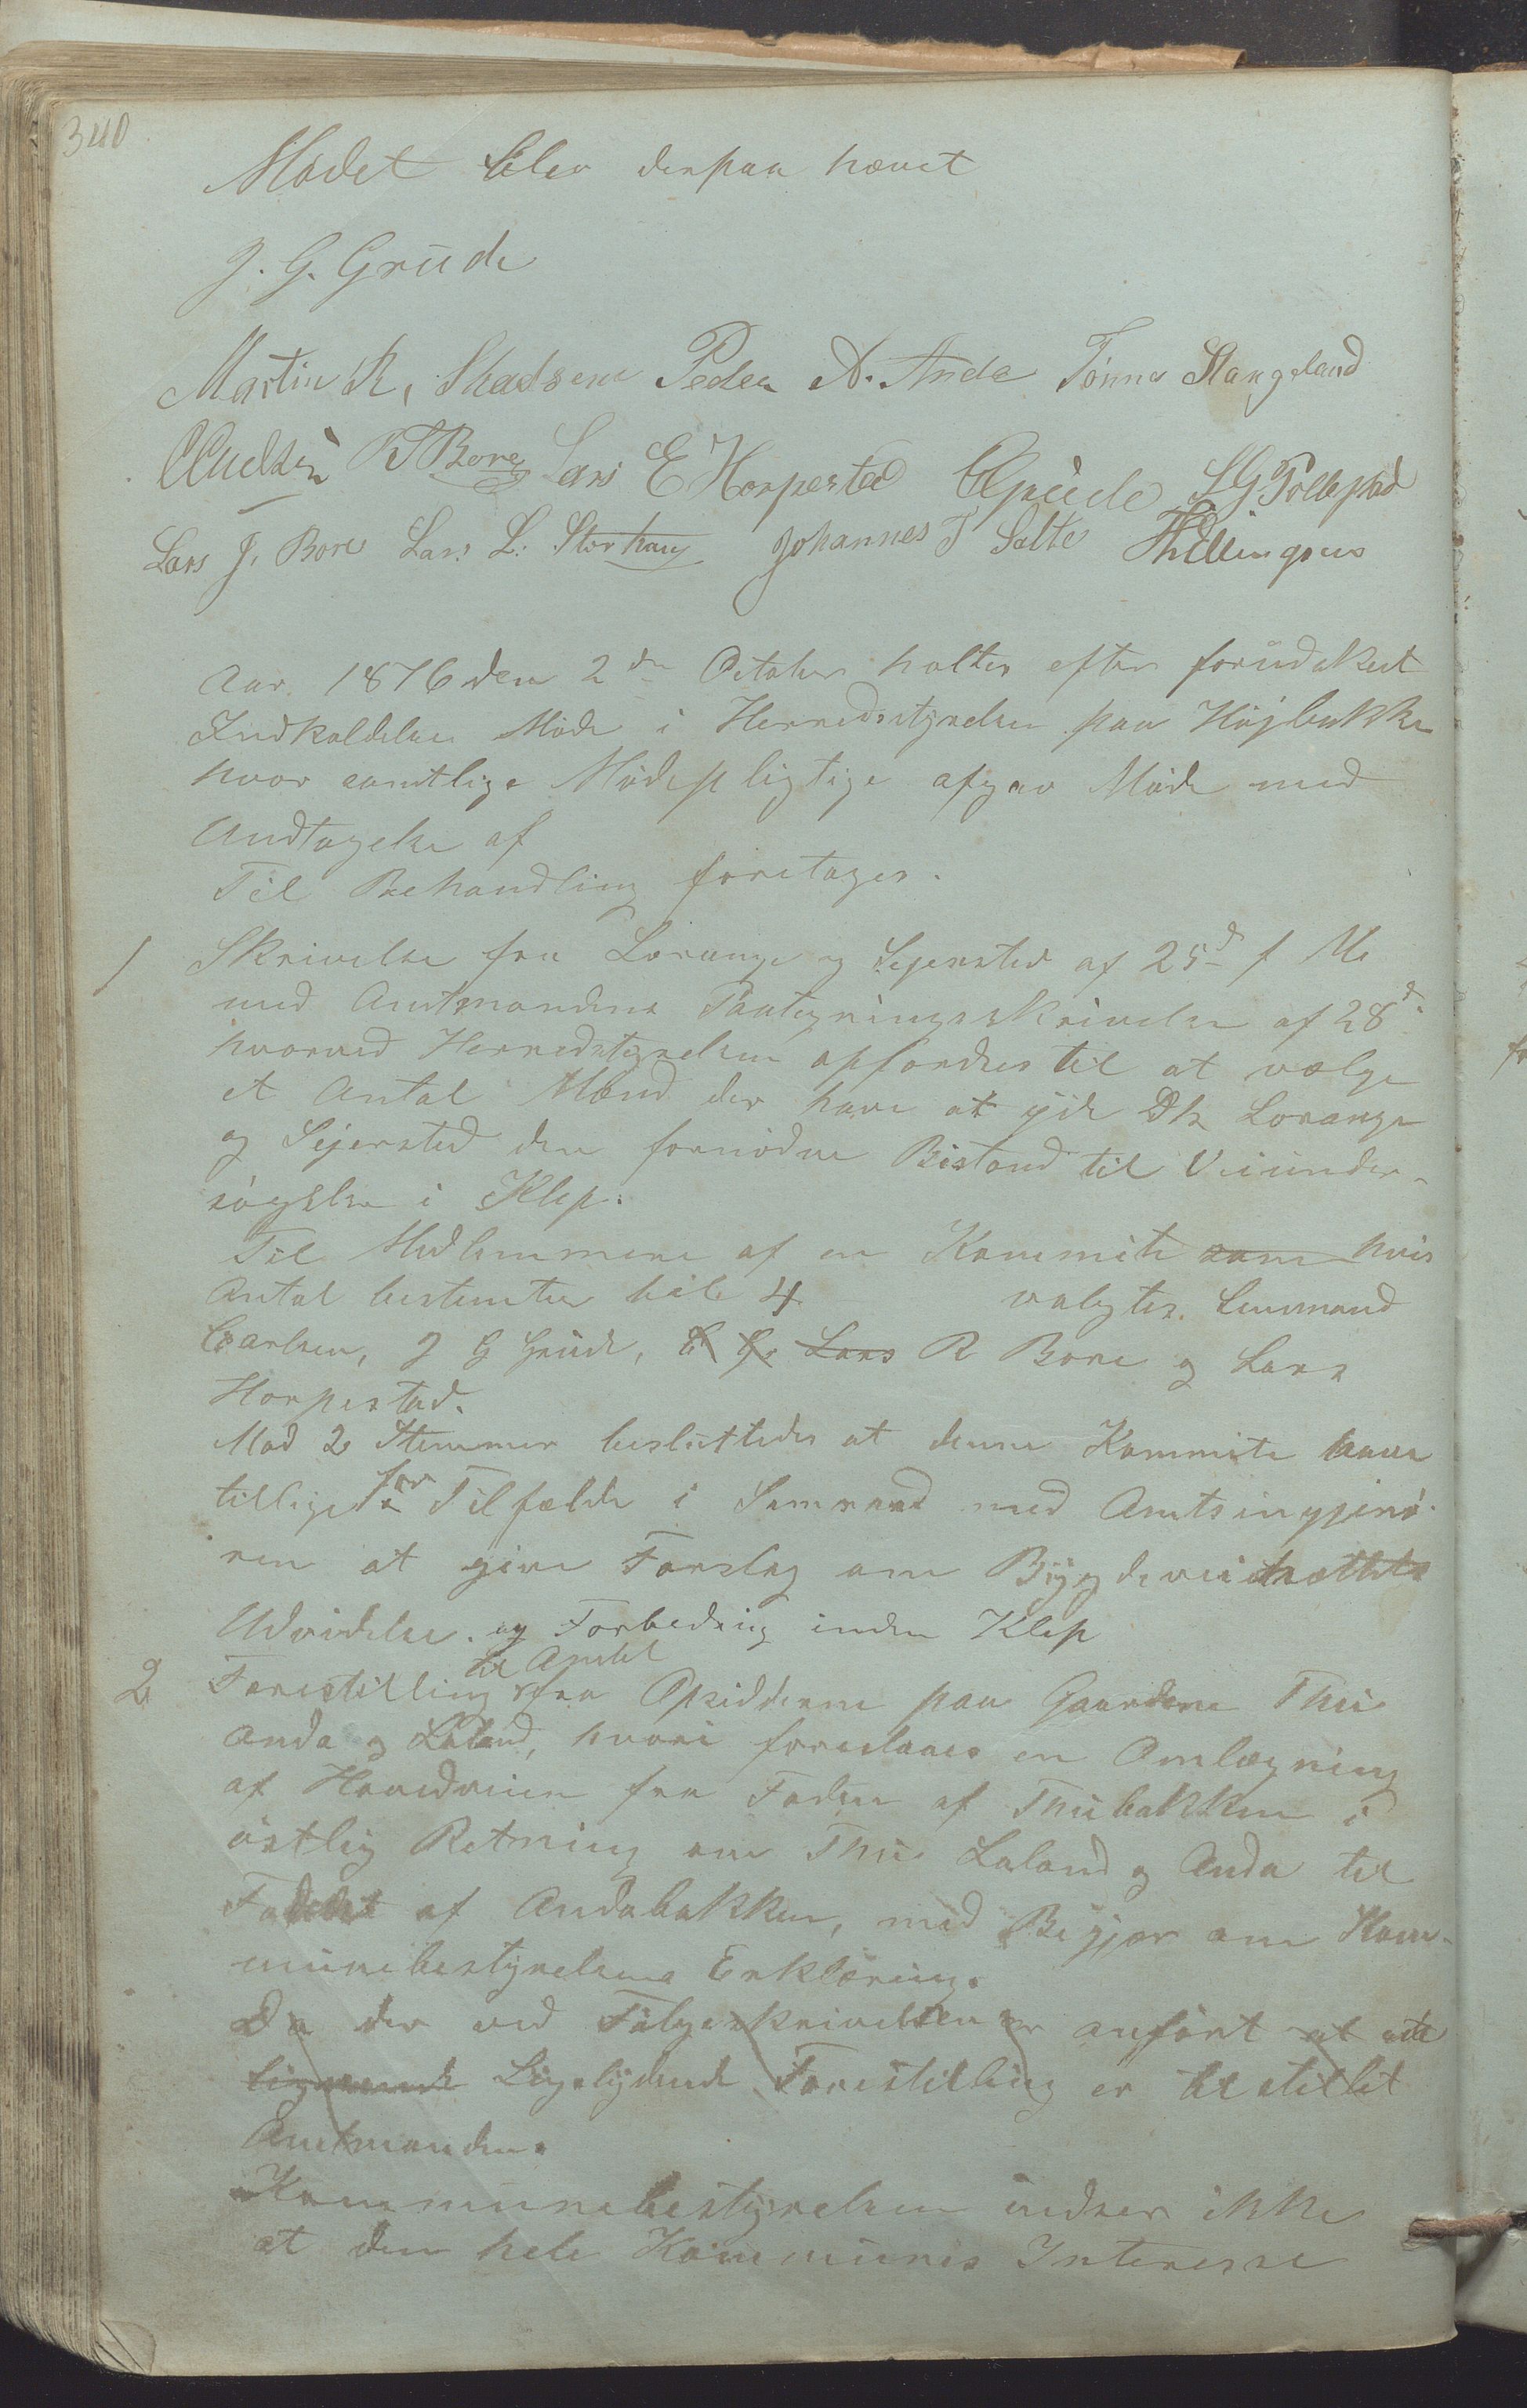 340
Mødet blev derpaa hævet
J. G. Grude
Martin R, Skadsem Peder A. Anda Tønnes Stangeland
R T Bore Lars E Horpestad Grude
Lars J. Bore Lars L. Storhaug Johannes T Salte
Aar 1876 den 2den October holtes efter forudskeet
Indkaldelse Møde i Herredsstyrelsen paa Højbakke
hvor samtlige Mødepligtige afgav Møde med
Undtagelse af
Til Behandling foretages.
1 Skrivelse fra Lorange og Sejersted af 25d f M.
med Amtmandens Paategningsskrivelse af 28d
hvorved Herredstyrelsen opfordres til at vælge
et Antal Mænd der have at yde Dhr Lorange
og Sejersted den fornødne Bistand til Veiunder-
søgelse i Klep.
Til Medlemmene af en Kommite som hvis
Antal bestemtes bile 4 valgtes. Lensmand
Carlsen, J G Grude, L G. Lars R Bore og Lars
Horpestad.
Mod 2 Stemmer besluttedes at denne Kommite have
tillige for Tilfælde i Samraad med Amtsingjenø-
ren at give Forslag om Bygdeveie
Udvidelse og Forbedring inden Klep
til Amtet
2 Forestilling fra Opsidderne paa Gaardene Thu
Anda og Laland, hvori foreslaaes en Omlægning
af Hovedveien fra Foden af Thubakken i
østlig Retning om Thu Laland og Anda til
Foden af Andabakken, med Begjær om Kom-
munebestyrelsens Erklæring.
Da der ved Følgeskrivelsen er anført at
Ligelydende Forestilling er tilstillet
Amtmanden.
Kommunebestyrelsen indser ikke
at den hele Kommunes Interesse